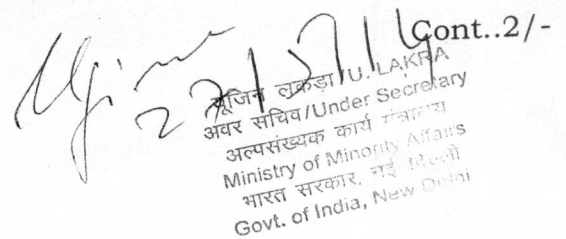 Cont..2/-
यूजिन लकड़ा/U. LAKRA
अवर सचिव/Under Secretary
अल्पसंख्यक कार्य मंत्रालय
Ministry of Minority Affairs
भारत सरकार, नई दिल्ली
Govt. of India, New Delhi